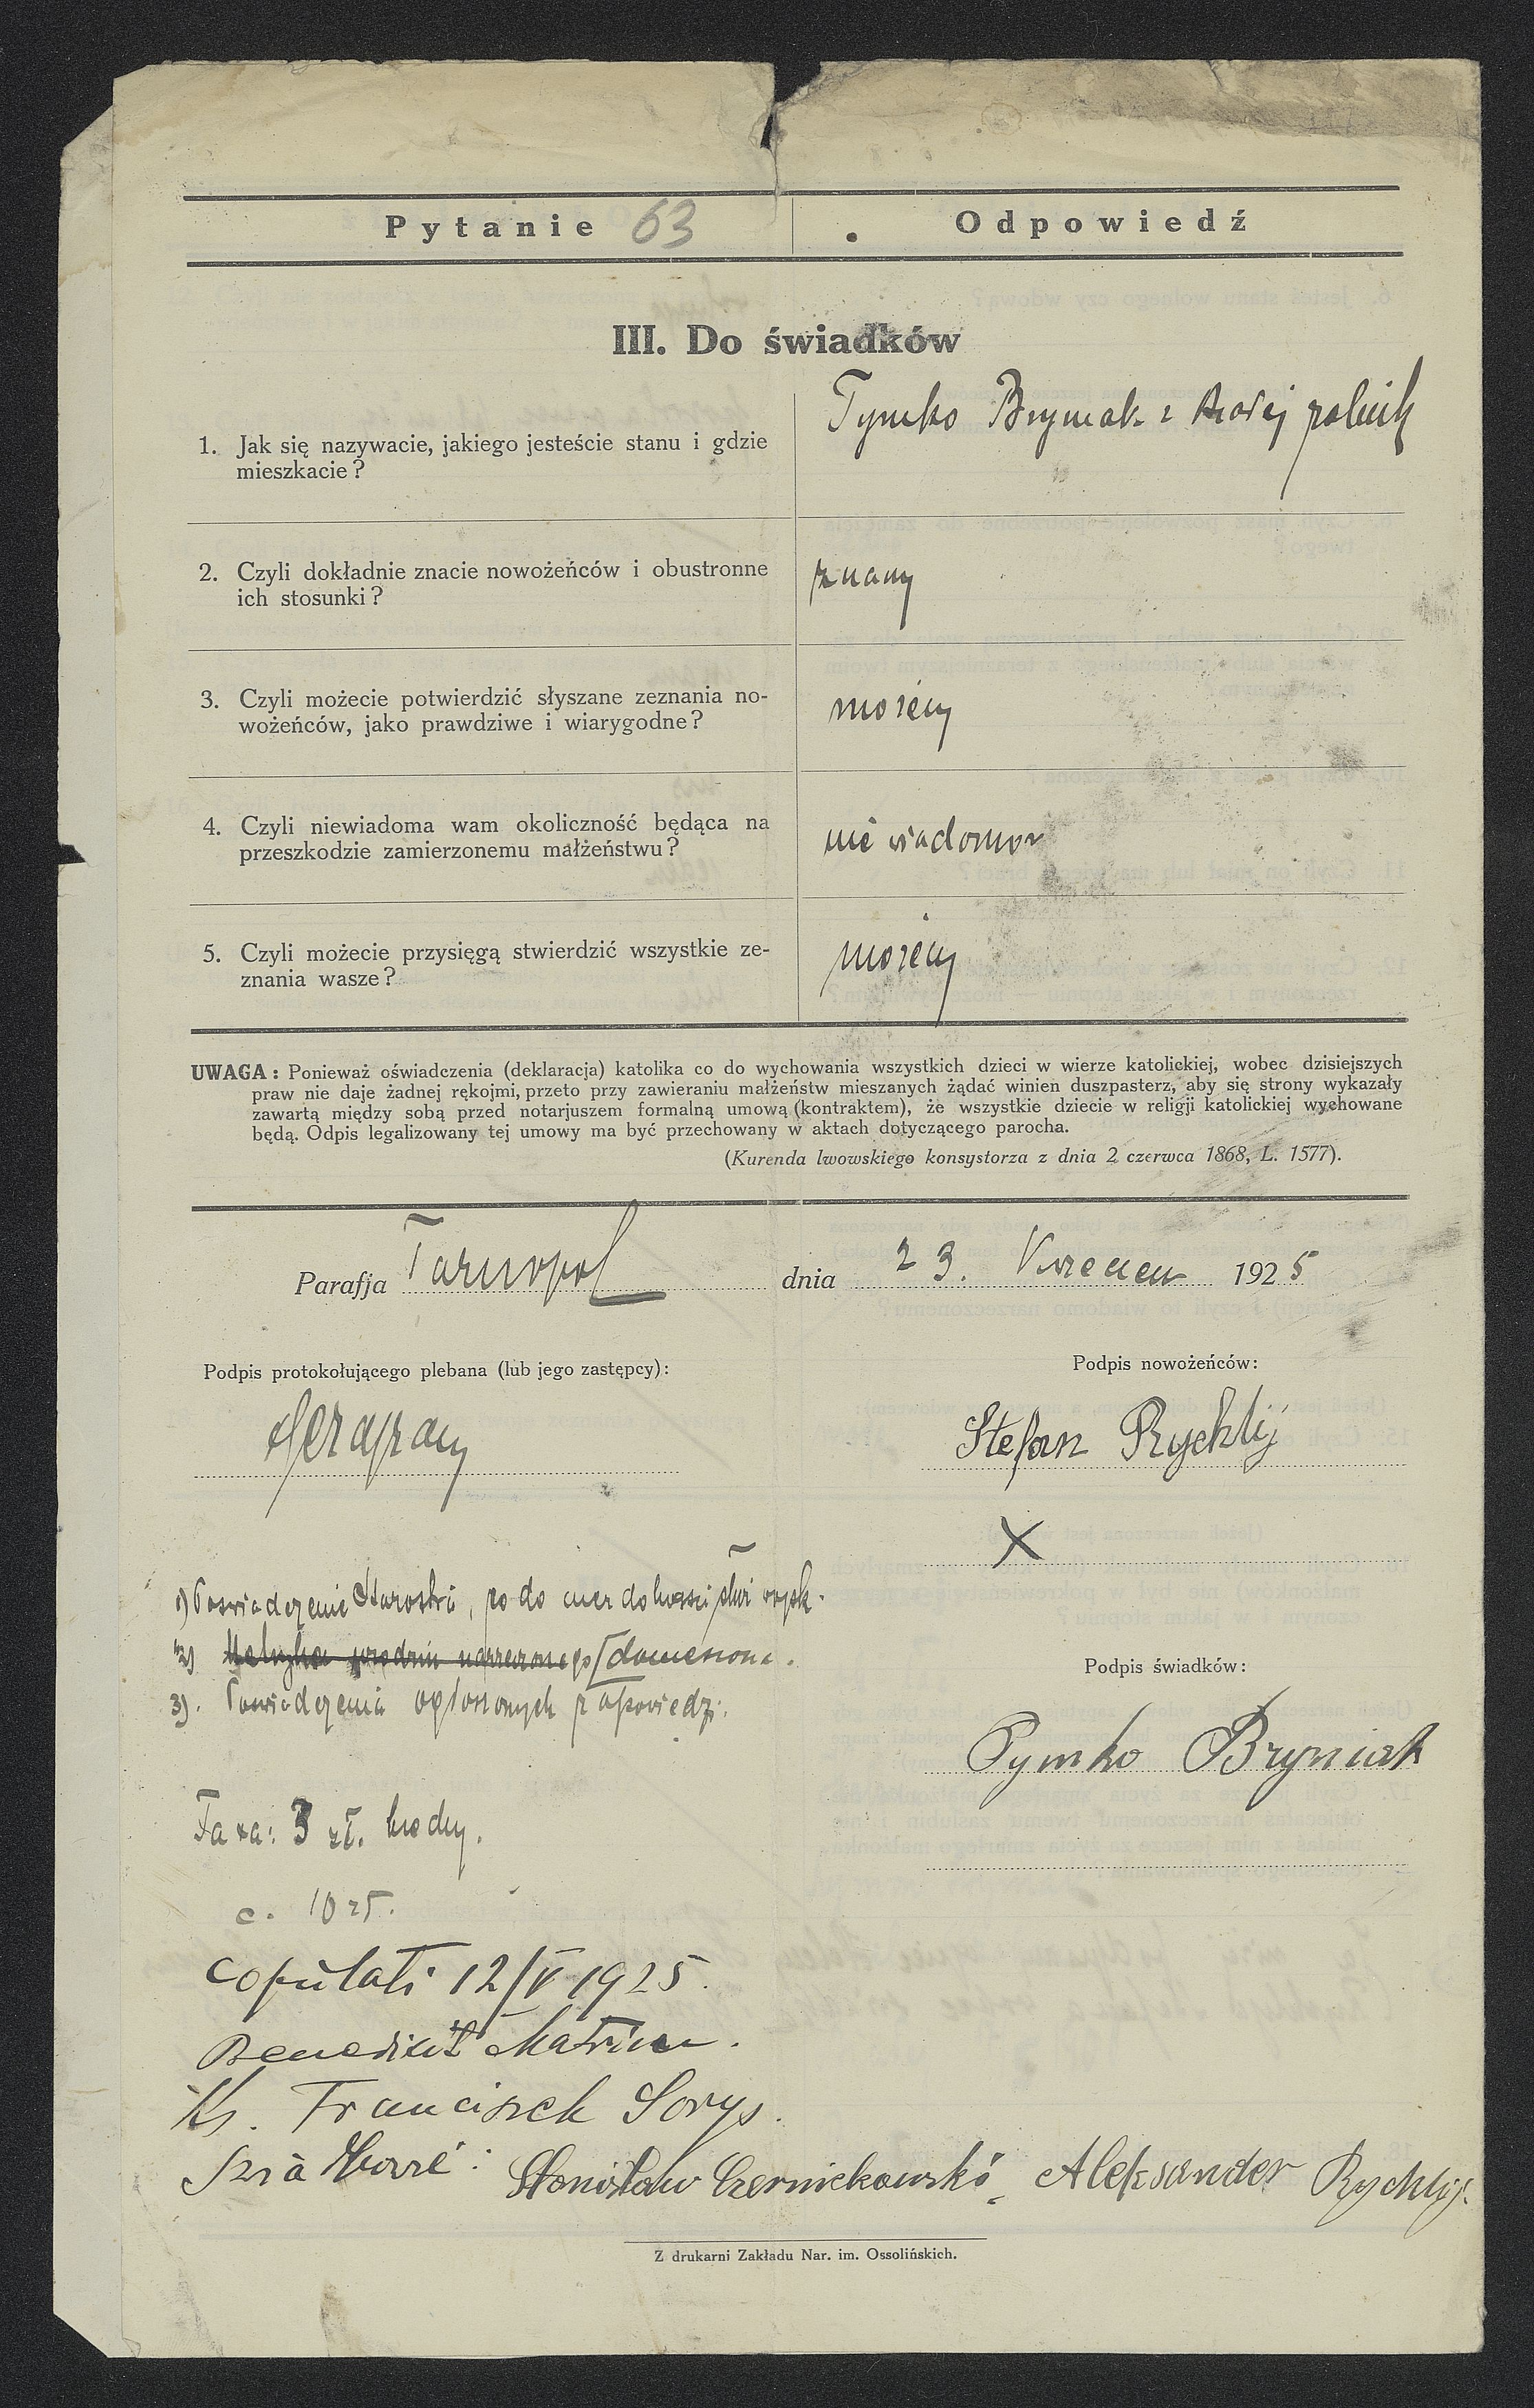 Pytanie 63 Odpowiedź
III. Do świadków
1. Jak się nazywacie, jakiego jesteście stanu i gdzie
mieszkacie?
Tymko Bryniak z rolnik
2. Czyli dokładnie znacie nowożeńców i obustronne
ich stosunki?
znamy
3. Czyli możecie potwierdzić słyszane zeznania no-
wożeńców, jako prawdziwe i wiarygodne?
możemy
4. Czyli niewiadoma wam okoliczność będąca na
przeszkodzie zamierzonemu małżeństwu?
nie wiadoma
5. Czyli możecie przysięgą stwierdzić wszystkie ze-
znania wasze?
możemy
UWAGA: Ponieważ oświadczenia (deklaracja) katolika co do wychowania wszystkich dzieci w wierze katolickiej, wobec dzisiejszych
praw nie daje żadnej rękojmi, przeto przy zawieraniu małżeństw mieszanych żądać winien duszpasterz, aby się strony wykazały
zawartą między sobą przed notarjuszem formalną umową (kontraktem), że wszystkie dziecie w religji katolickiej wychowane
będą. Odpis legalizowany tej umowy ma być przechowany w aktach dotyczącego parocha.
(Kurenda lwowskiego konsystorza z dnia 2 czerwca 1868, L. 1577).
Parafja Tarnopol dnia 23. 1925
Podpis protokołującego plebana (lub jego zastępcy):
Podpis nowożeńców:
Stefan Rychlij
X
1) Poświadczenie Starostwa, co do
2) Metryka narzeczonego
3). Poświadczenia ogłoszonych zapowiedzi.
Podpis świadków:
Tymko Bryniak
Taxa: 3 zł.
c. 10 zł.
Copulati 12/V 1925.
Benedixit
Ks. Franciszek Sorys.
Świadkowie: Stanisław Czerniekowski, Aleksander Rychlij.
Z drukarni Zakładu Nar. im. Ossolińskich.